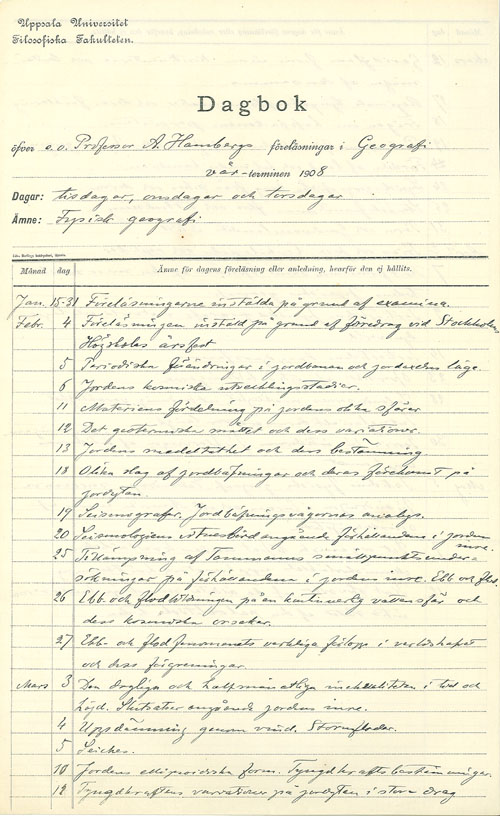 Uppsala Universitet
Filosofiska Fakulteten.
Dagbok
öfver e.o. Professor A. Hambergs föreläsningar i Geografi
vår-terminen 1908
Dagar: tisdagar, onsdagar och torsdagar
Ämne: Fysisk geografi
Månad dag Ämne för dagens föreläsning eller anledning, hvarför den ej hållits.
Jan. 15-31 Föreläsningarne inställda på grund af examina.
Febr. 4 Föreläsningen inställd på grund af föredrag vid Stockholms
Högskolas årsfest
5 Periodiska förändringar i jordbanan och jordaxelns läge.
6 Jordens kosmiska utvecklingsstadier.
11 Materiens fördelning på jordens olika sfärer
12 Det geotermiska måttet och dess variationer.
13 Jordens medeltäthet och dess bestämning
18 Olika slag af jordbäfningar och deras förekomst på
jordytan.
19 Seismografer. Jordbäfningsvågornas analys.
20 Seismologiens vittnesbörd angående förhållandena i jordens
inre.
25 Tillämpning af Tammanns smältpunktsunder-
sökningar på förhållandena i jordens inre. Ebb och flod.
26 Ebb- och flodbildningen på en kontinuerlig vattensfär och
dess kosmiska orsaker.
27 Ebb- och flodfenomenets verkliga förlopp i världshafvet
och dess förgreningar.
Mars 3 Den dagliga och halfmånatliga inekvaliteten i tid och
höjd. Slutsatser angående jordens inre.
4 Uppdämning genom vind. Stormfloder.
5 Seiches.
10 Jordens ellipsoidiska form. Tyngdkraftsbestämningar.
12 Tyngdkraftens variationer på jordytan i stora drag